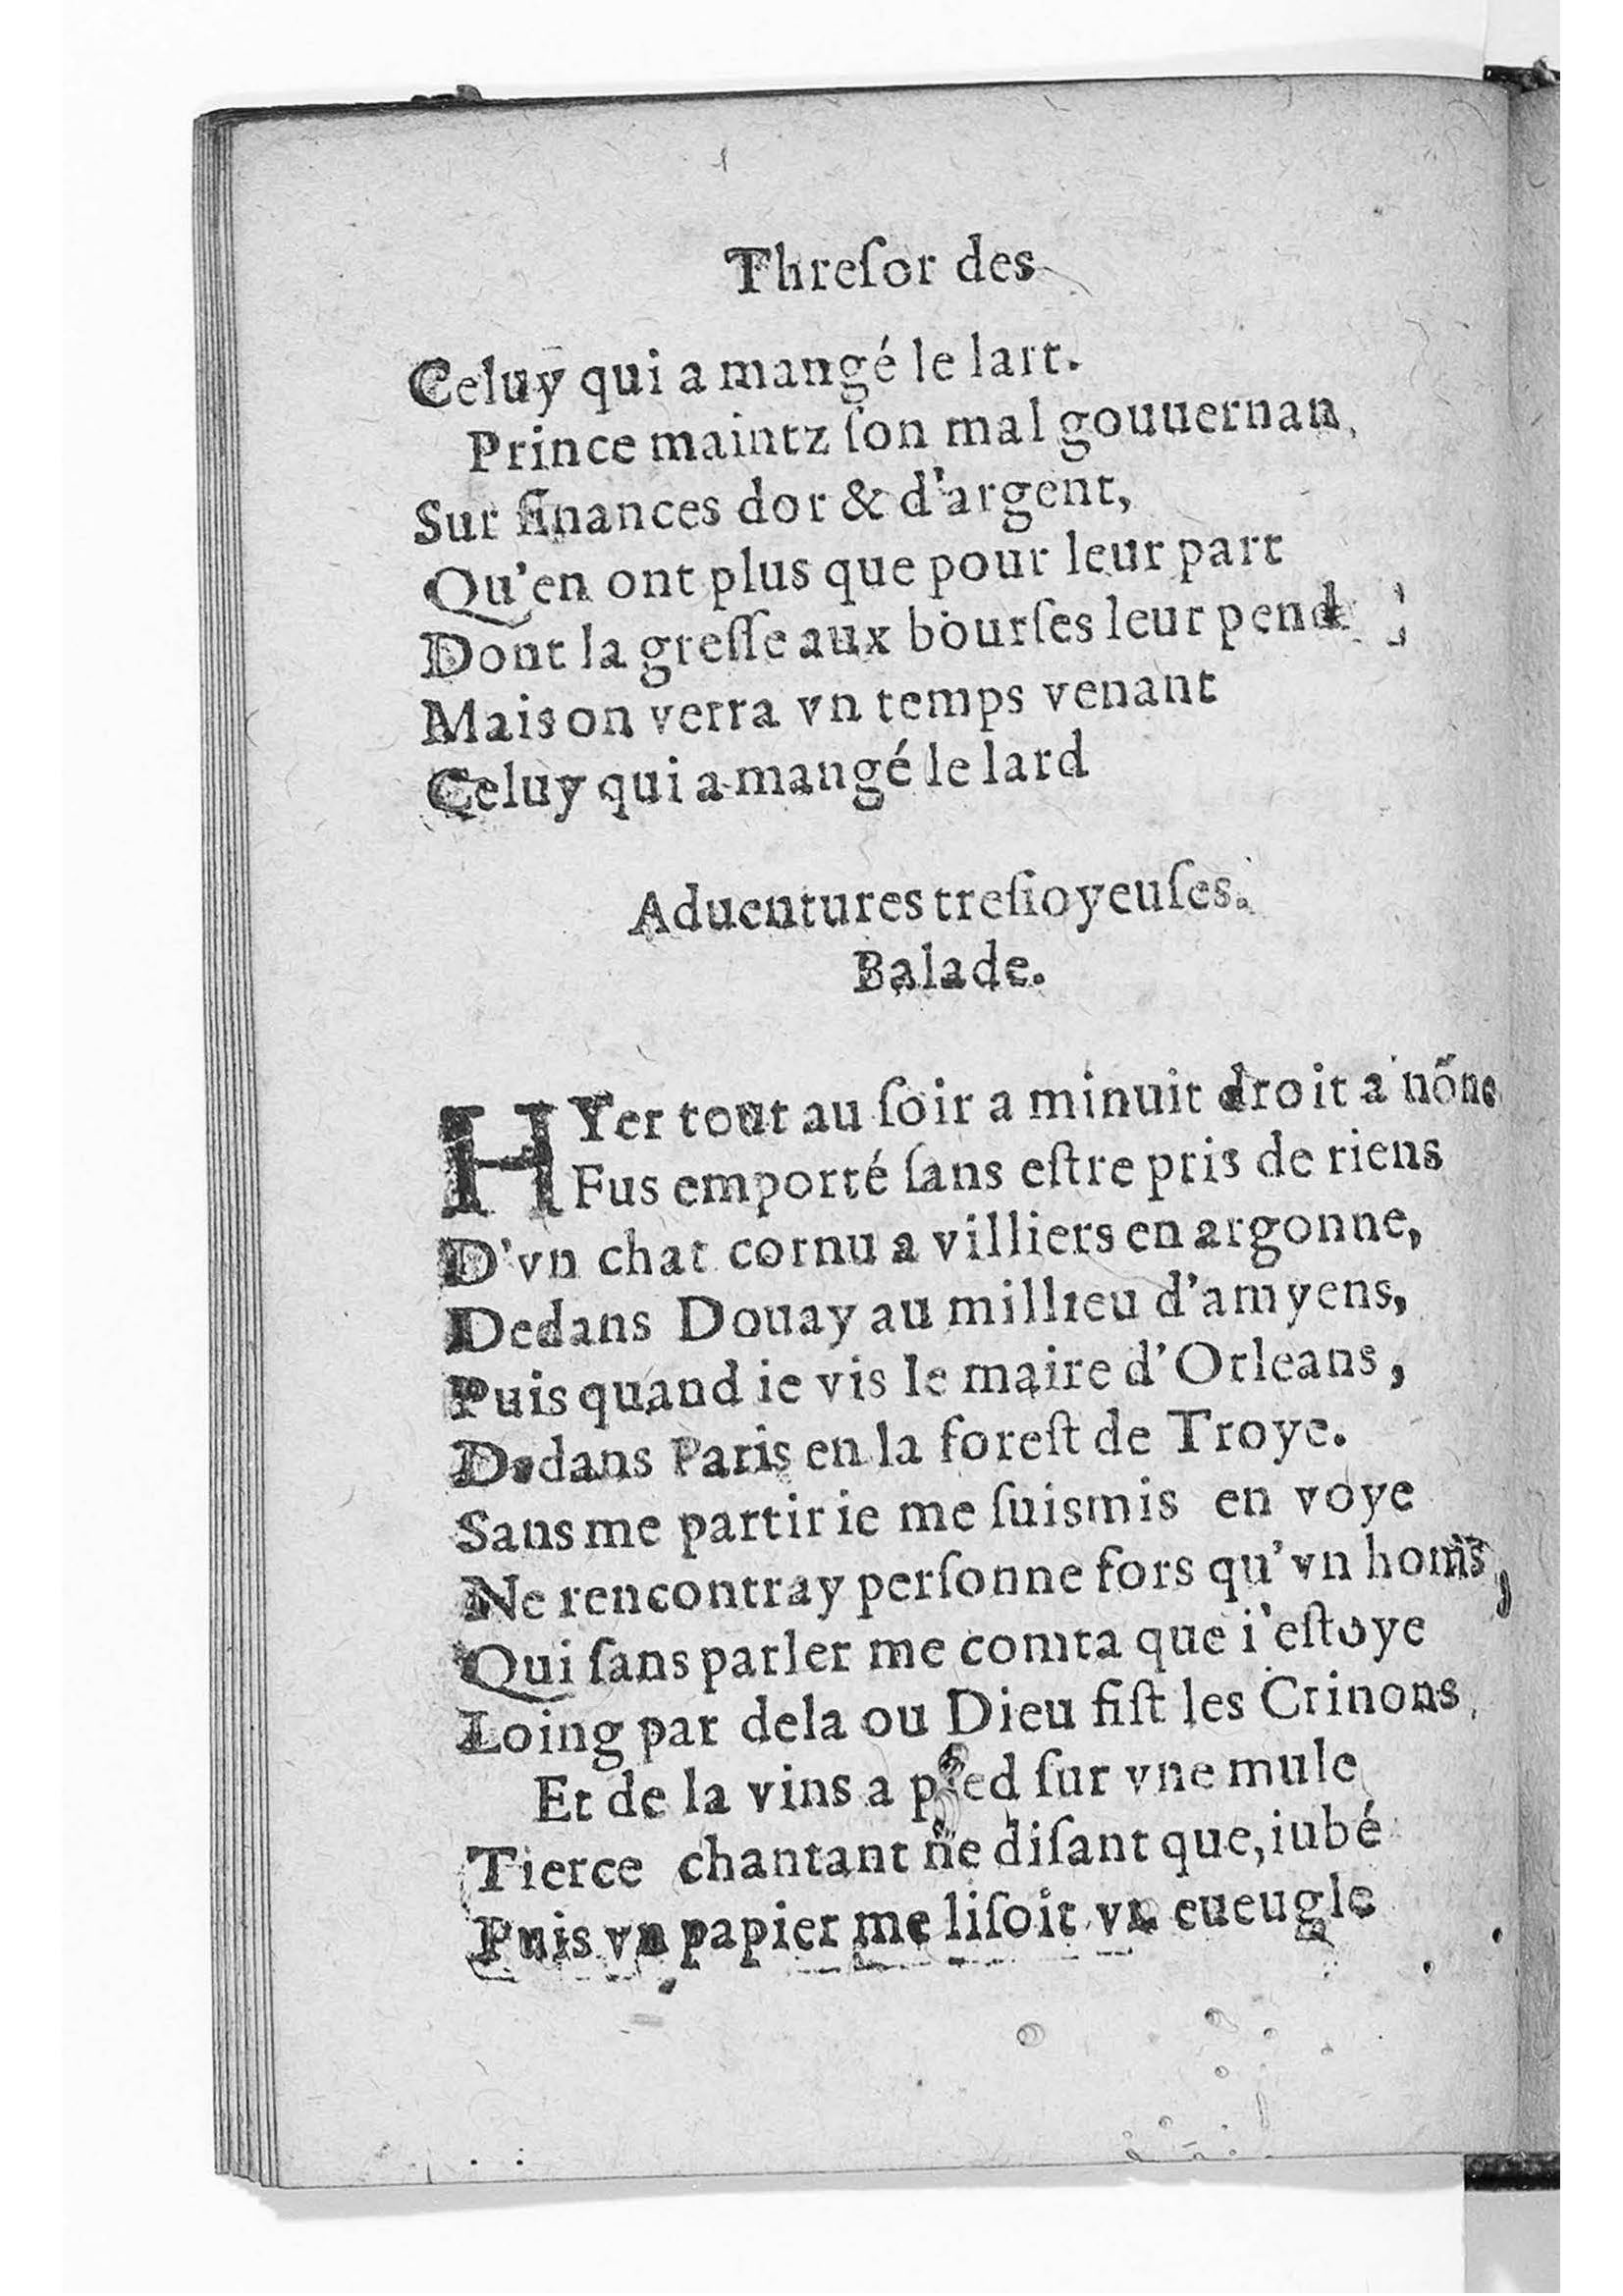 Threſor des
Celuy qui a mangé le lart.
Prince maintz ſon mal gouuernan,
Sur finances dor & d'argent,
Qu'en ont plus que pour leur part
Dont la greſſe aux bourſes leur pend
Mais on verra vn temps venant
Celuy qui a mangé le lard
Aduentures treſioyeuſes.
Balade.
HYer tout au ſoir a minuit droit a nõne
Fus emporté ſans eſtre pris de riens
D'vn chat cornu a villiers en argonne,
Dedans Douay au millieu d'amyens,
Puis quand ie vis le maire d'Orleans,
Dedans Paris en la foreſt de Troye.
Sans me partir ie me ſuis mis en voye
Ne rencontray perſonne fors qu'vn hom̃s,
Qui ſans parler me comta que i'eſtoye
Loing par dela ou Dieu fiſt les Crinons,
Et de la vins a pied ſur vne mule
Tierce chantant ne diſant que, iubé
Puis vn papier me liſoit vn eueugle